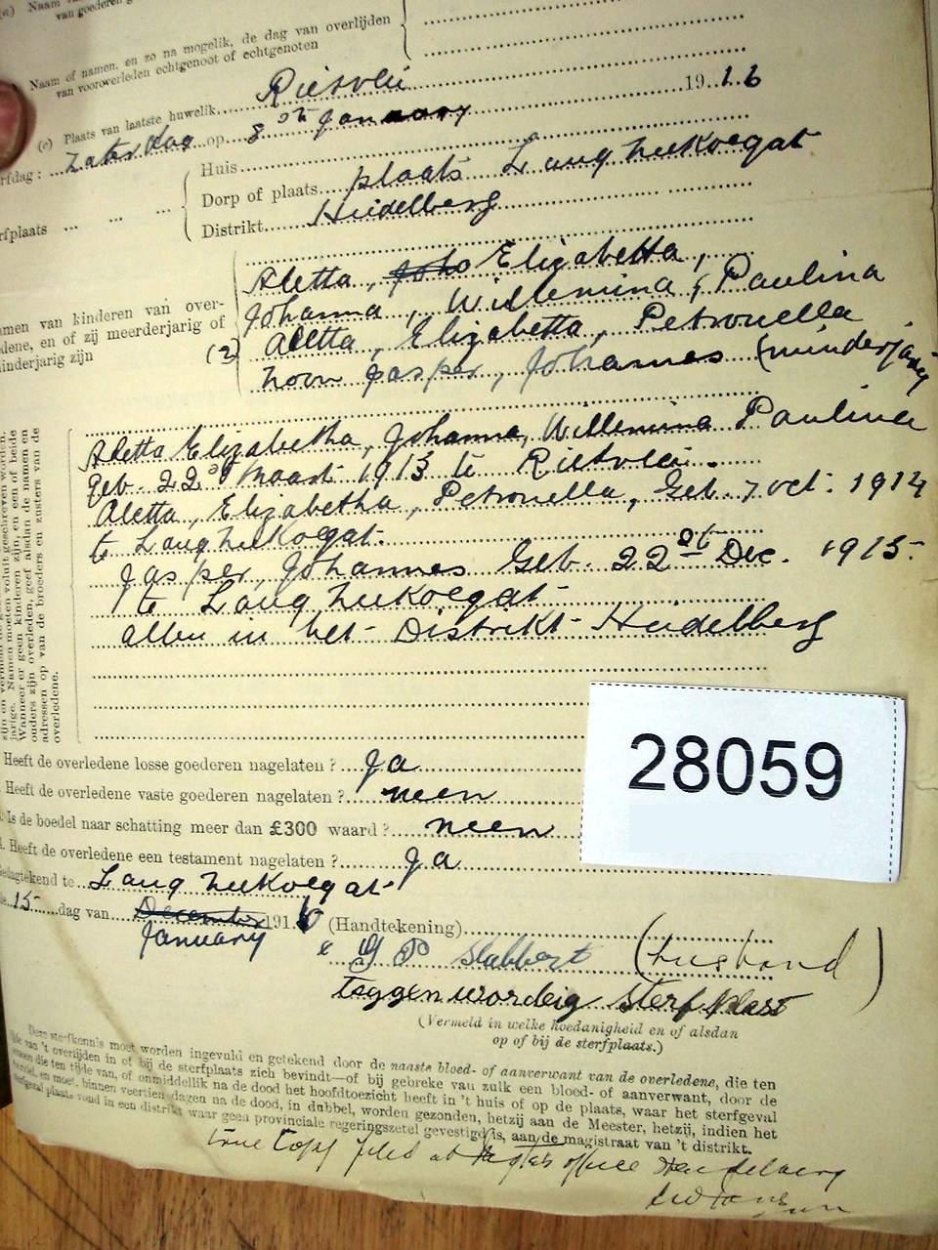 (a) Naam
van goederen
Naam of namen, en zo na mogelik, de dag van overlijden
van vooroverleden echtgenoot of echtgenoten
(c) Plaats van laatste huwelik Rietvlei
rfdag: Zaterdag op 8ste January 1916
Huis
rfplaats Dorp of plaats plaats Langzeekoegat
Distrikt Heidelberg
Aletta, Elizabetta,
Johanna, Willemina, Paulina
amen van kinderen van over-
dene, en of zij meerderjarig of
inderjarig zijn
(2) Aletta, Elizabetta, Petronella
zoon Jasper, Johannes (minderjarig
Aletta Elizabetha, Johanna, Willemina Paulina
geb. 22ste Maart 1913 te Rietvlei.
Aletta, Elizabetha, Petronella, Geb. 7 Oct: 1914
te Langzeekoegat.
Jasper, Johannes Geb. 22ste Dec. 1915
te Langzeekoegat
allen in het Distrikt Heidelberg
jarige. Namen moeten voluit geschreven worden.
Wanneer er geen kinderen zijn, en een of beide
ouders zijn overleden, geef alsdan de namen en
adressen op van de broeders en zusters van de
overledene.
Heeft de overledene losse goederen nagelaten? Ja
Heeft de overledene vaste goederen nagelaten? neen
28059
Is de boedel naar schatting meer dan £300 waard? neen
Heeft de overledene een testament nagelaten? Ja
Gedagtekend te Langzeekoegat
15 dag van December 1916 (Handtekening)
January
x J P Slabbert (husband)
teggenwordeig sterfplaas
(Vermeld in welke hoedanigheid en of alsdan
op of bij de sterfplaats.)
Deze sterfkennis moet worden ingevuld en getekend door de naaste bloed- of aanverwant van de overledene, die ten
tijde van 't overlijden in of bij de sterfplaats zich bevindt—of bij gebreke van zulk een bloed- of aanverwant, door de
die ten tijde van, of onmiddellik na de dood het hoofdtoezicht heeft in 't huis of op de plaats, waar het sterfgeval
en moet, binnen veertien dagen na de dood, in dubbel, worden gezonden, hetzij aan de Meester, hetzij, indien het
sterfgeval plaats vond in een distrikt waar geen provinciale regeringszetel gevestigd is, aan de magistraat van 't distrikt.
True Copy filed at office Heidelberg